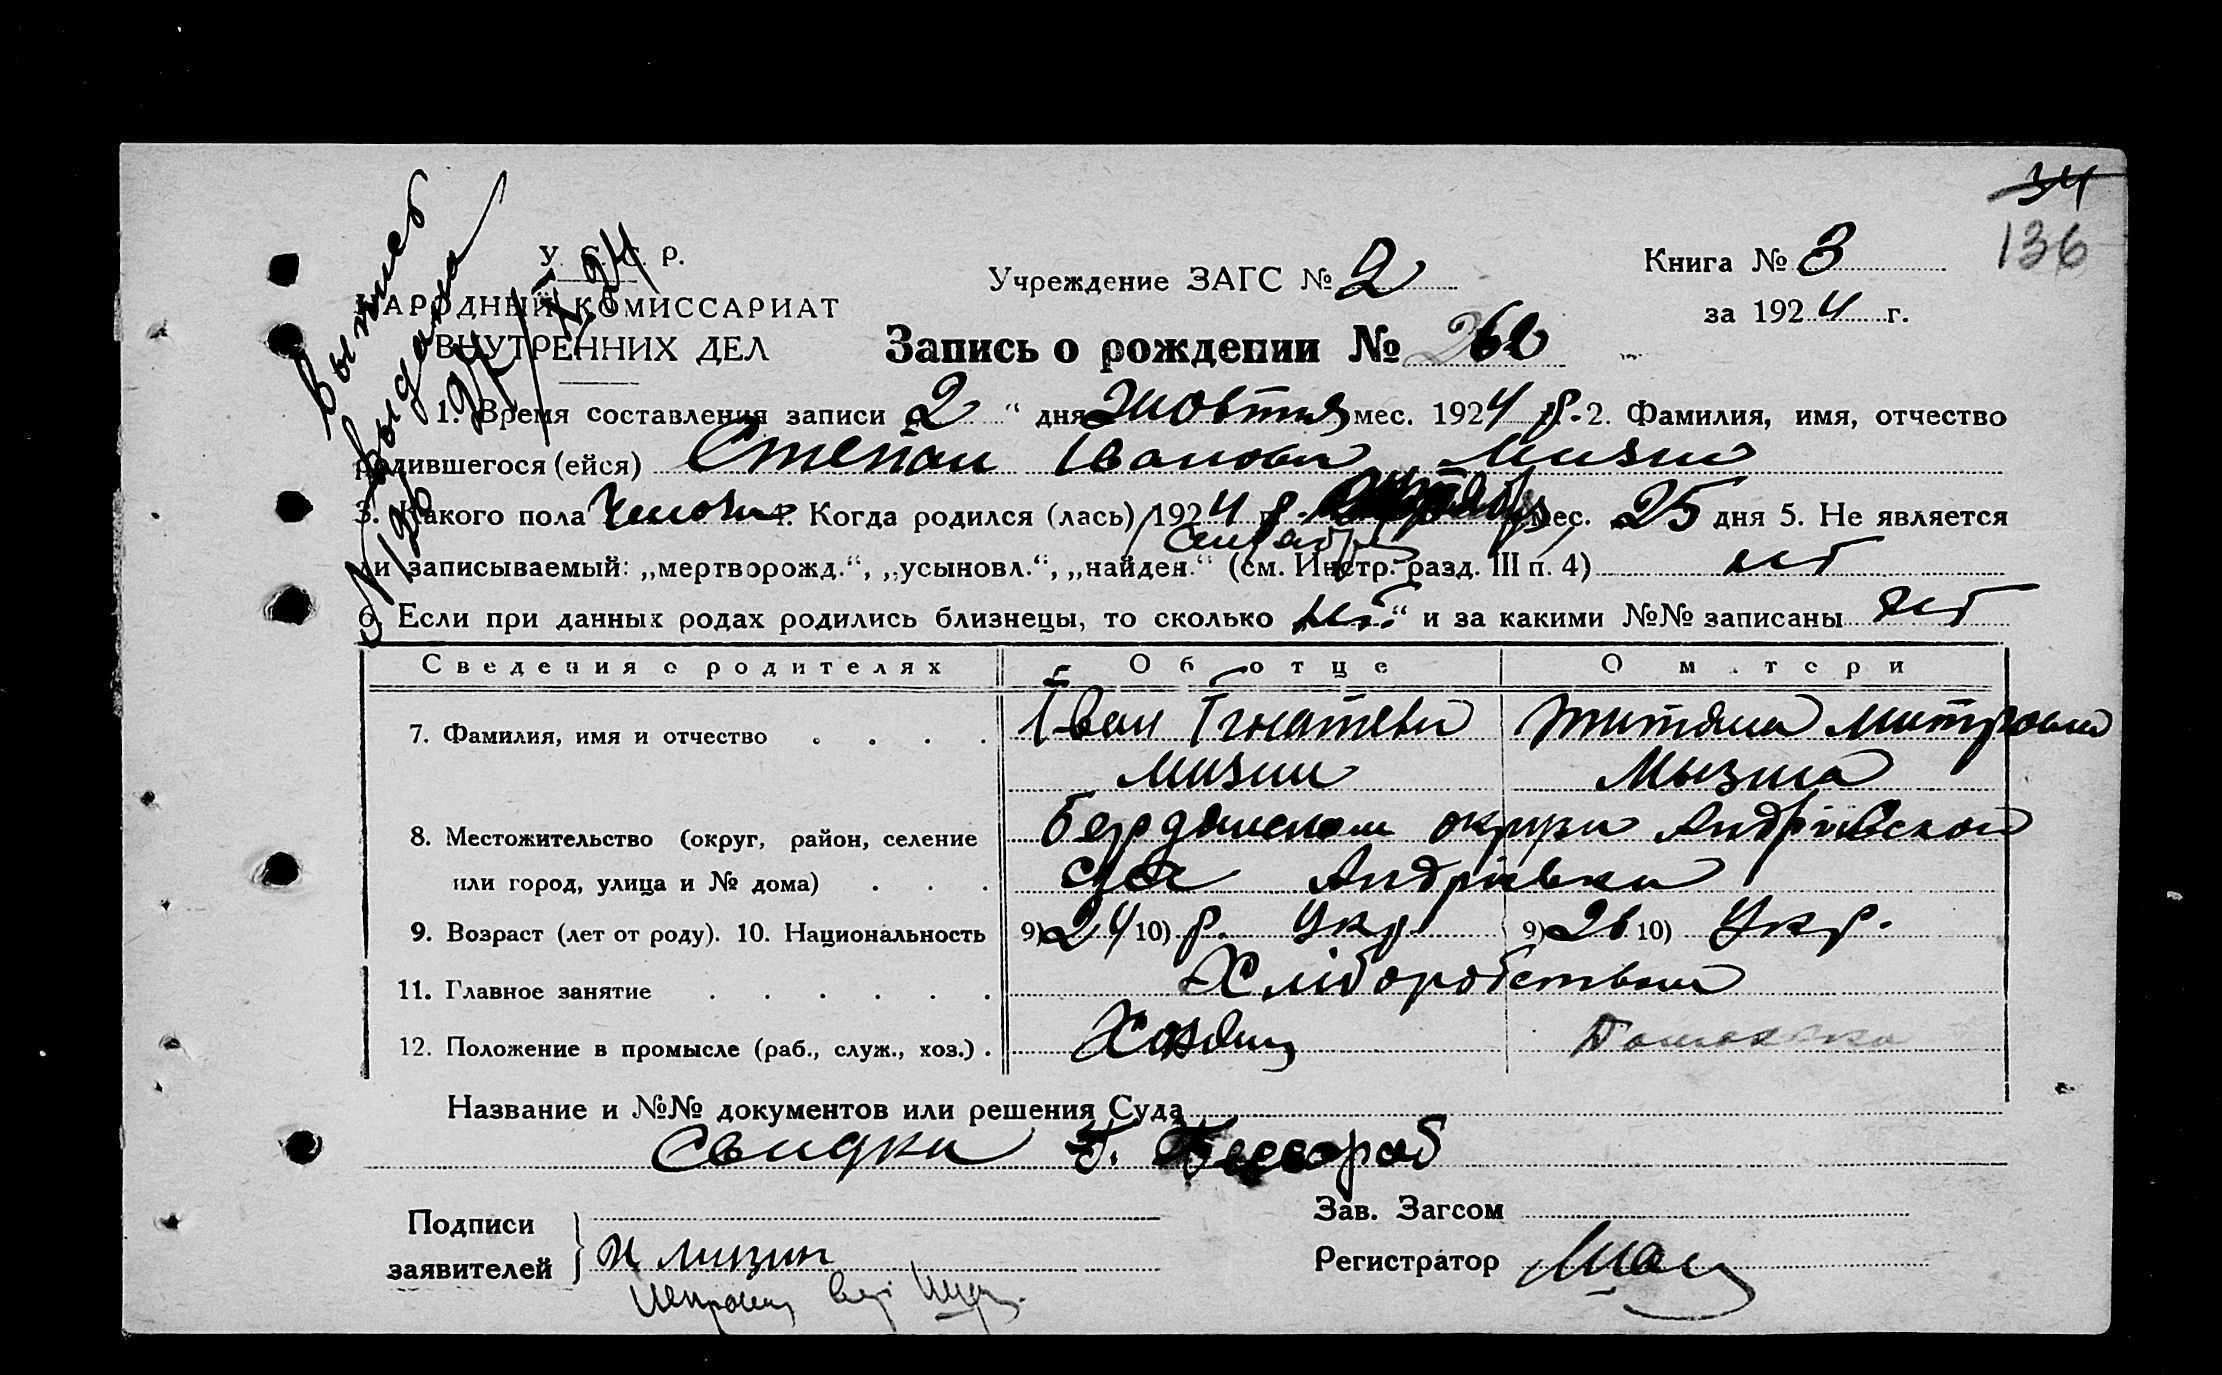 34
136
У. С. С. Р.
НАРОДНЫЙ КОМИССАРИАТ
ВНУТРЕННИХ ДЕЛ
Учреждение ЗАГС № 2
Книга № 3
за 1924 г.
Запись о рождении № 260
Выпись
выдана
1. Время составления записи 2 “ дня жовтня мес. 1924 р. 2. Фамилия, имя, отчество
родившегося (ейся) Степан Іванови Мизин
3. Какого пола 4. Когда родился (лась) 1924 г. р. мес. 25 дня 5. Не является
Сентября
ли записываемый: „мертворожд.“, „усыновл.“, „найден.“ (см. Инстр. разд. III п. 4) нт
6. Если при данных родах родились близнецы, то сколько нт “ и за какими №№ записаны нт
Сведения о родителях О б о т ц е О м а т е р и
7. Фамилия, имя и отчество . . . . Іван Ігнатеви Титяна Митровна
Мизин Мызина
8. Местожительство (округ, район, селение Бердянском округи Андріівской
или город, улица и № дома) . . . Андріівка
9. Возраст (лет от роду). 10. Национальность 9) 24 10) р. Укр. 9) 26 10) Укр.
11. Главное занятие . . . . . . Хліборобством
12. Положение в промысле (раб., служ., хоз.) . Хозяин
Название и №№ документов или решения Суда
Свидки
Подписи
заявителей
И Мизин
Зав. Загсом
Регистратор